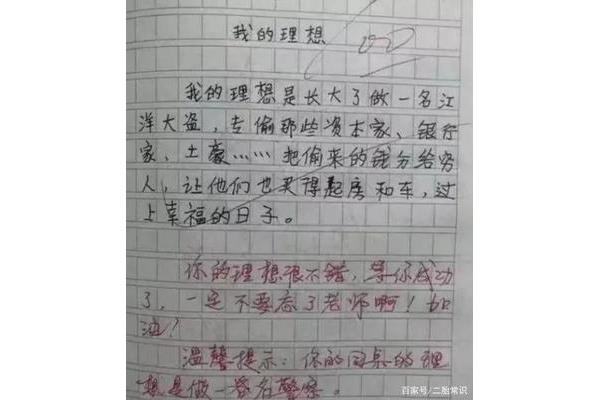 我的理想
我的理想是长大了做一名江
洋大盗，专偷那些资本家、银行
家、土豪……把偷来的钱分给穷
人，让他们也买得起房和车，过
上幸福的日子。
你的理想很不错，等你成功
了，一定不要忘了老师啊！加
油！
温馨提示：你的同桌的理
想是做一名警察。
百家号/二胎常识